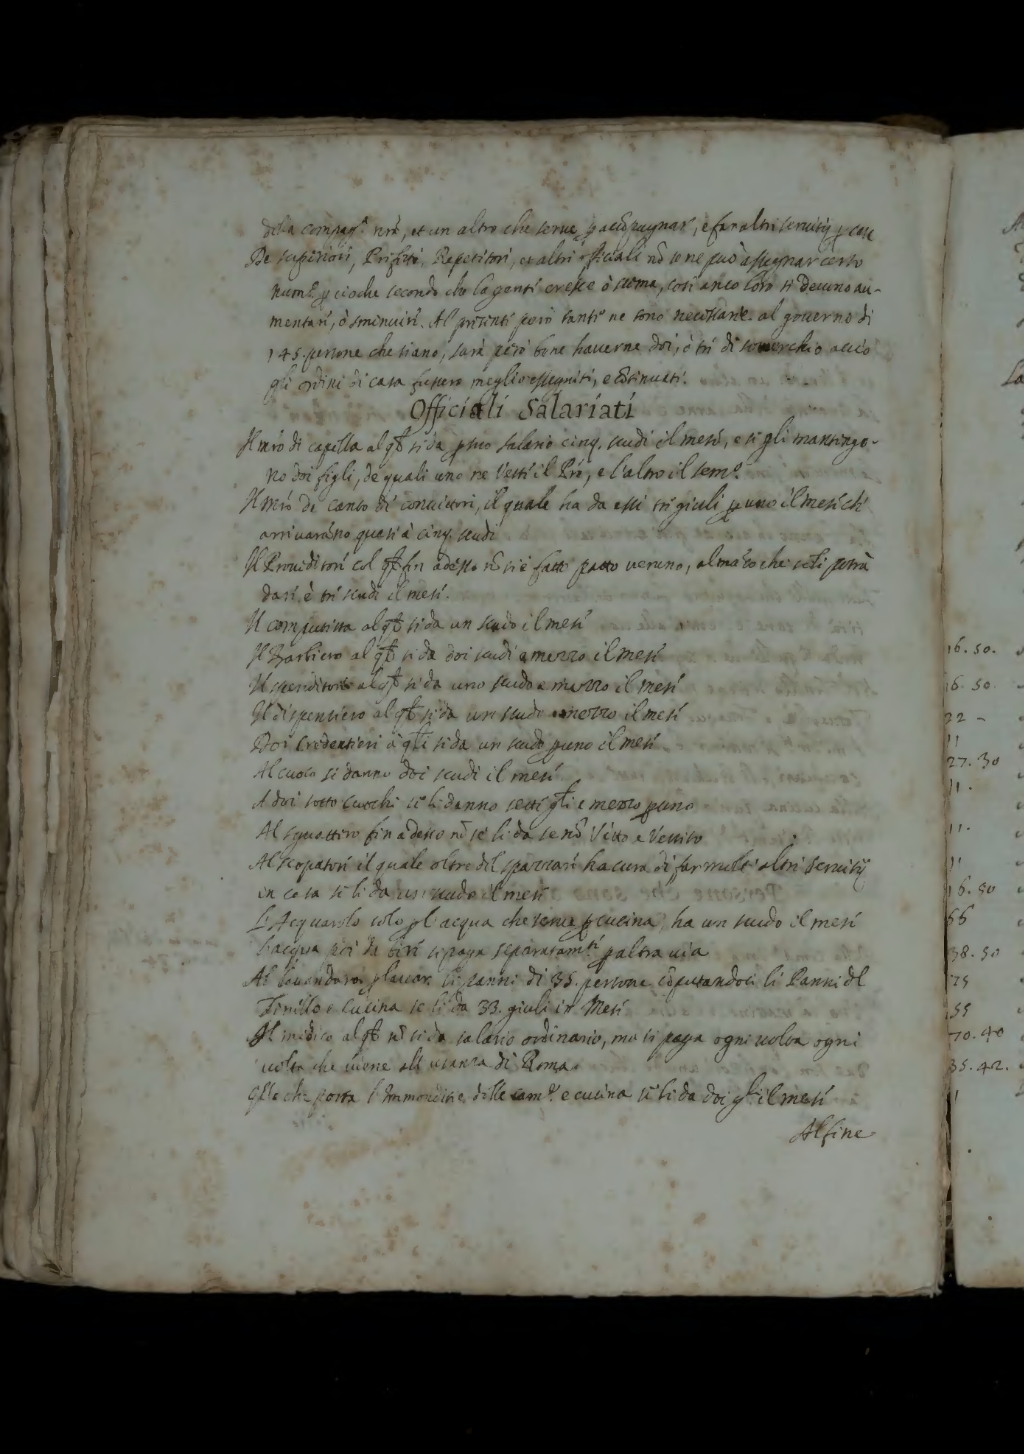 della compag.ª nrã, et un altro che serve p accõpagnar', e far altri servitij p casa
De superiori, Prefetti, Repetitori, et altri officiali nõ se ne può assegnar certo
num.º p cioche secondo che la gente cresce ò scema, così anco loro si devono au-
mentari, ò sminuiri. Al presenti però tanti ne sono necessarie al governo di
145. persone che siano, sarà però bene haverne doi, ò tri di soverchio acciò
gli ordini di casa fussero meglio esseguiti, e cõtinuati.
Officiali Salariati
Il mrõ di capella al qł si dà p suo salario cinq. scudi il mesi, e si gli mantengo-
no doi figli, de quali uno ne vesti il Prē, e l'altro il sem.º
Il mrõ de canto di convittori, il quale ha da essi tri giuli p uno il mesi chi
arrivarãno quasi à cinq. scudi
Il Proveditori col qł fin adesso nõ si è fatto patto veruno, al mãco che seli potrà
dari è tri scudi il mesi.
Il computista al qł si da un scudo il mesi
Il Barbiero al qł si da doi scudi e mezzo il mesi
Il spenditore al qł si da uno scudo e mezzo il mesi
Il dispensiero al qł si da un scudo e mezzo il mesi
Doi Credentieri à qłi si da un scudo p uno il mesi
Al cuoco si danno doi scudi il mesi
A doi sotto cuochi se li danno setti głi e mezzo p uno
Al sguattiro fin adesso nõ se li da se nõ Vitto e Vestito
Al scopatori il quale oltre del spazzari ha cura di far molti altri servitij
in casa se li da un scudo il mesi
L'Acquarolo solo p l'acqua che serve p cucina, ha un scudo il mesi
l'acqua poi da biri si paga separatam.ti p altra via
Al lavandara p lavar li panni di 35. persone cõputandoci li Panni dl
Tinillo e Cucina se li da 33. giuli il Mesi
Al medico al qł nõ si da salario ordinario, ma si paga ogni volta ogni
volta che viene all'usanza di Roma
Qłlo che porta l'Immonditie dille cam.e e cucina se li da doi gł. il mesi
Al fine
16. 50.
16. 50.
22 -
11
27. 30
11.
11.
11
16. 50
66
38. 50
75
55
70. 40
35. 42.